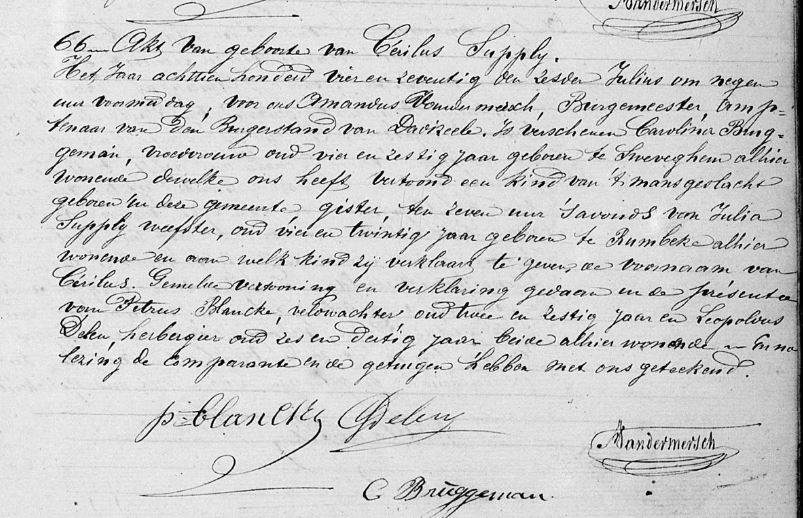 Vandermersch
66en Akt van geboorte van Cérilus Supply.
Het Jaar achttien honderd vier en zeventig den zesden Julius om negen
uur voormiddag, voor ons Amandus Vandermersch, Burgemeester, amp-
tenaar van den Burgerstand van Dadizeele. Is verschenen Carolina Brug-
geman, vroedvrouw oud vier en zestig jaar geboren te Sweveghem alhier
wonende dewelke ons heeft vertoond een kind van 't mansgeslacht
geboren in deze gemeente gister, ten zeven uur 's avonds van Julia
Supply weefster, oud vier en twintig jaar geboren te Rumbeke alhier
wonende en aan welk kind zij verklaart te geven de voornaam van
Cérilus. Gemelde vertooning en verklaring gedaan in de présentie
van Petrus Blancke, veldwachter oud twee en zestig jaar en Leopoldus
Deleu, herbergier oud zes en dertig jaar beide alhier wonende en na
lezing de comparante en de getuigen hebben met ons geteekend.
p. blancke Deleu
Vandermersch
C Brüggeman